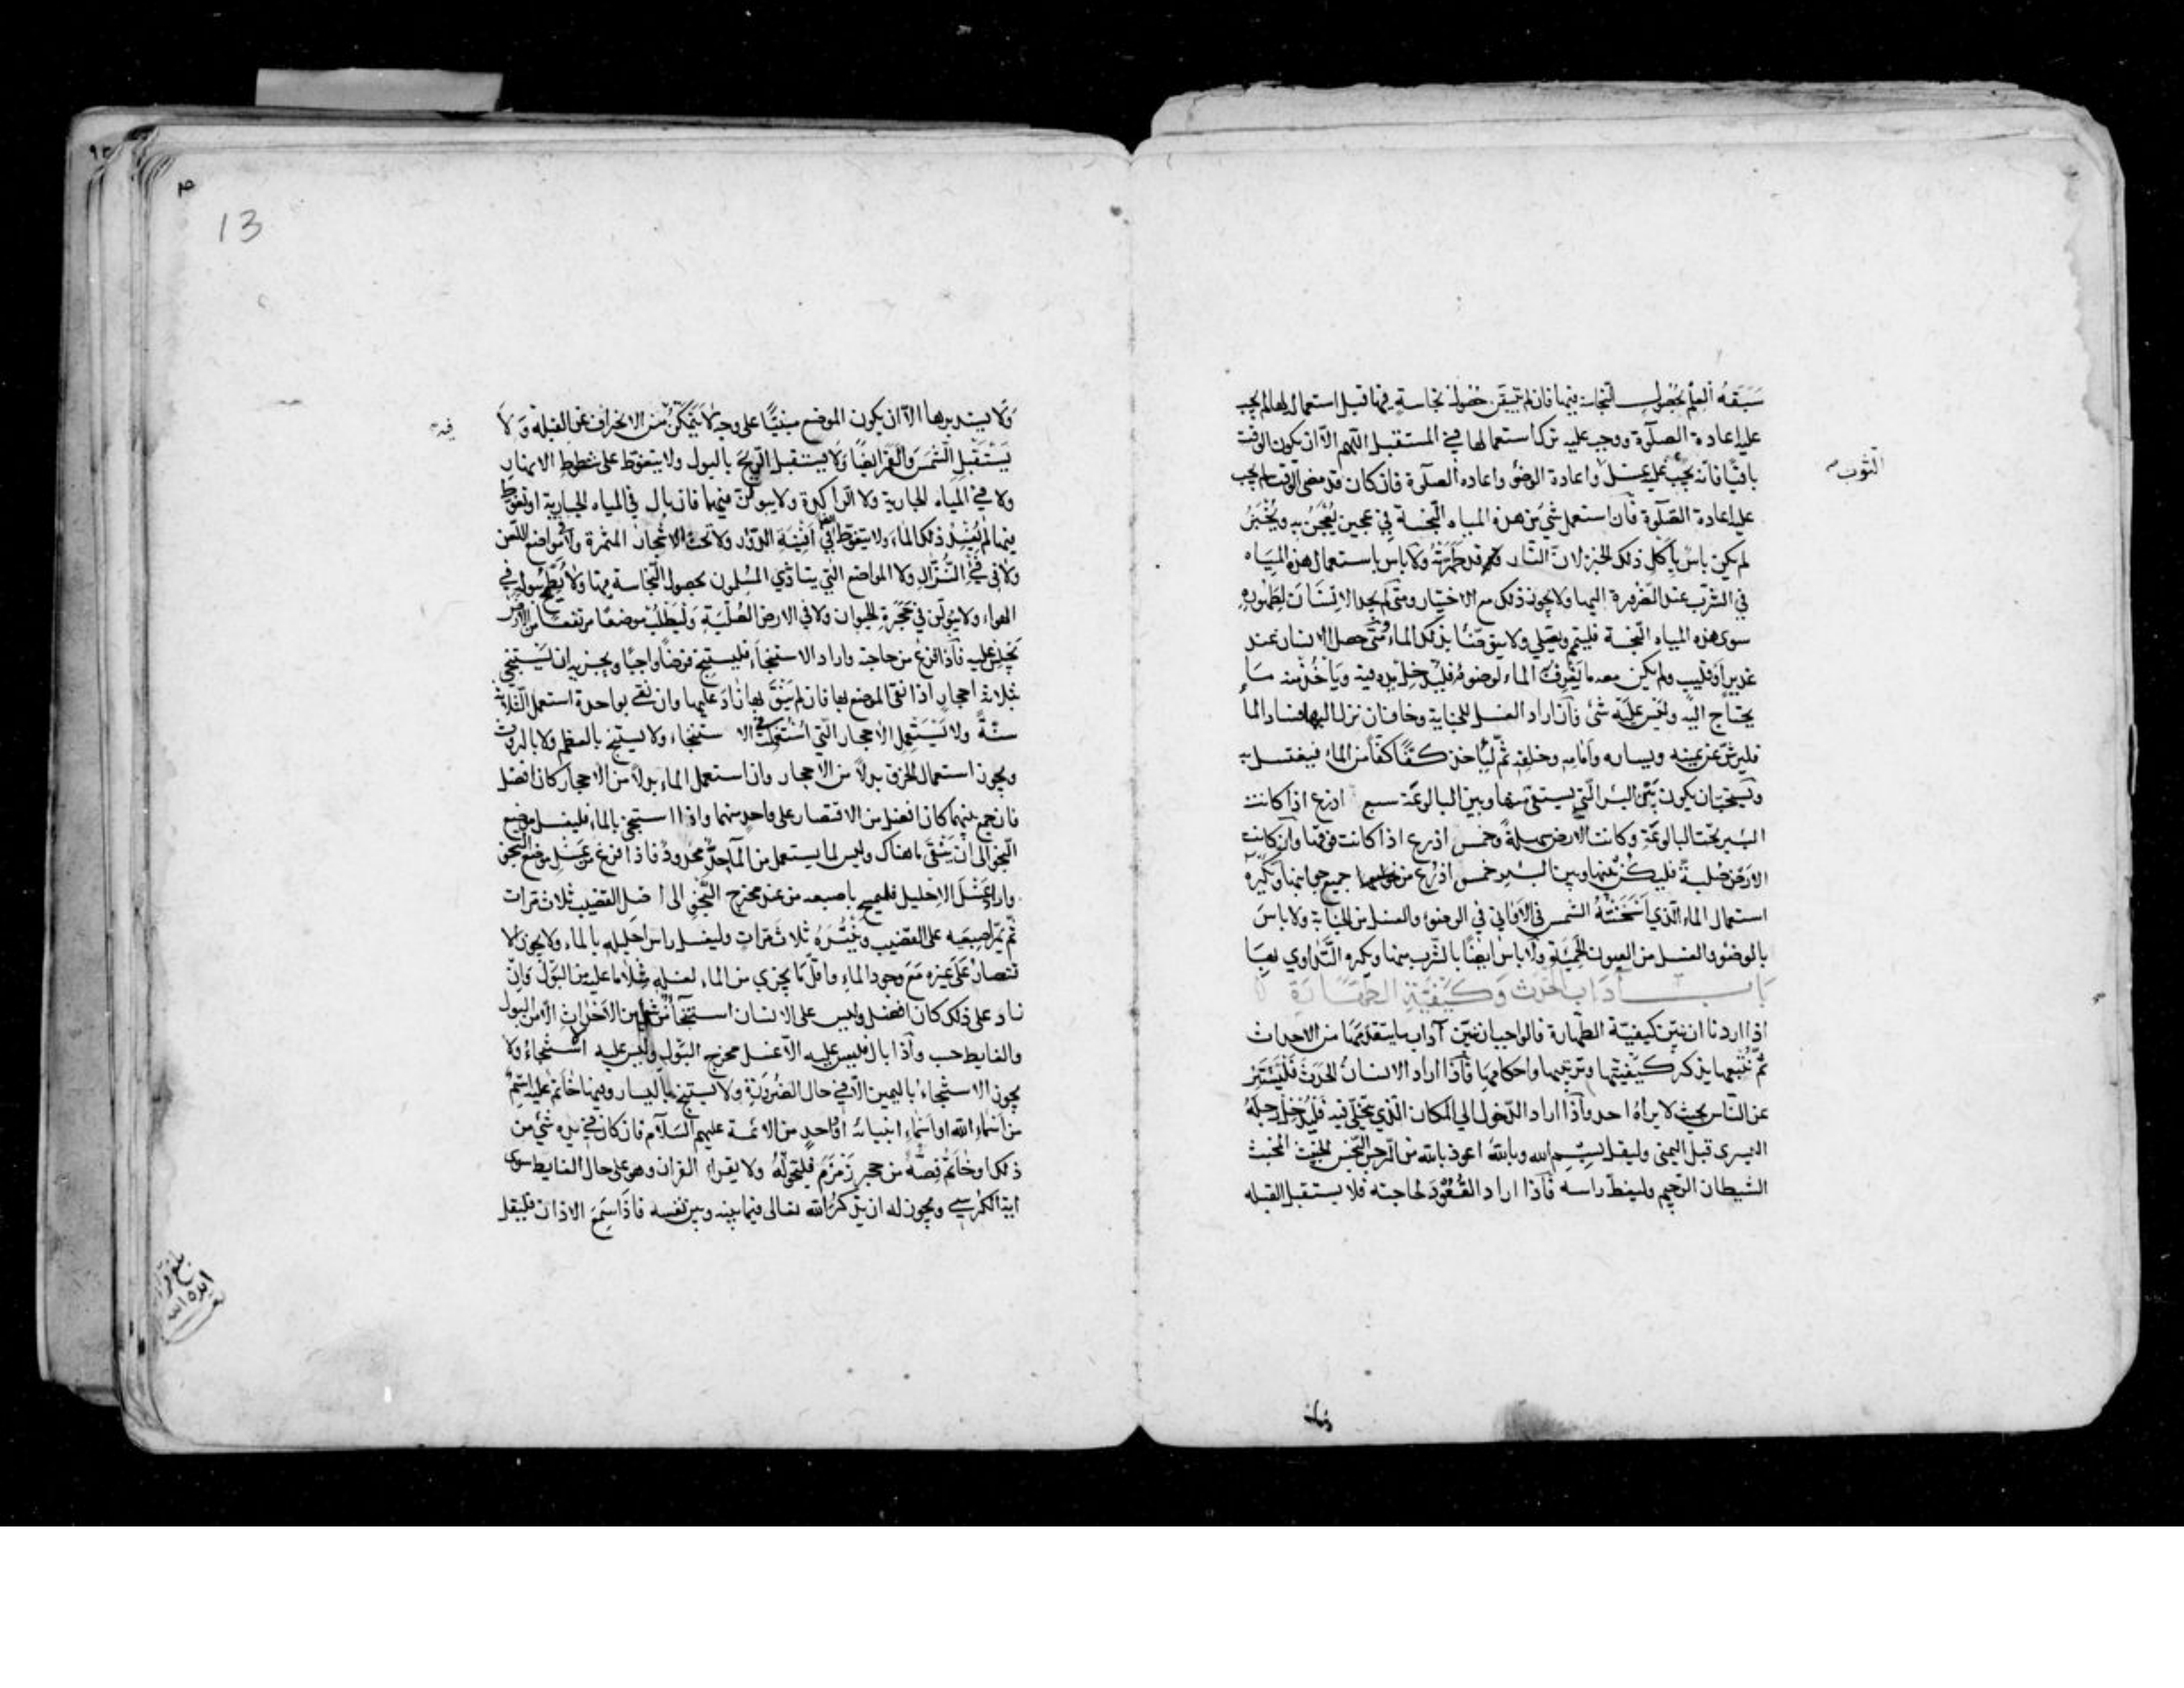 سَبَقَهُ العِلْمُ بحُصُولِ النجاسة فيها فان لم يتيقن حُصُولَ نجاسةٍ فيها قبل استعماله لها لم يجب
عليه اعادة الصلوة ووجب عليه ترك استعمالها في المستقبل اللهم الّا ان يكون الوقت
باقيًا فانّه يجب عليه غسل واعادة الوضؤ واعاده الصلوة فان كان قد مضى الوقت لم يجب
الثوب
عليه اعادة الصّلوة فان استعمل شئ من هذه المياه النّجسة في عجين يُعْجَنُ به ويُخْبَزُ
لم يكن باس بأكلِ ذلك الخبز لان النّار قد طهّرَتْهُ ولا باس باستعمال هذه المِيَاه
في الشرب عند الضرورة اليها ولا يجوز ذلك مع الاختيار ومتى لم يجد الانسَان لِطَهُورِهِ
سوى هذه المياه النّجسة فليتيمم ويصَلي ولا يتوضّأ بذلك الماء ومَتَى حصل الانسان عند
غديرٍ اَو قليب ولم يكن معه ما يَغْرِفُ به الماء لوضوئه فليُدخِل يده فيه ويَأخُذ منه مَا
يحتاج اليه وليس عليه شئ فان اراد الغسل للجنابة وخاف ان نزل اليها فساد الما
فليرش عن يمينه ويساره وَاَمَامِهِ وخلفِهِ ثمّ ليأخذ كفًّا كفًّا من الماء فيغتسل به
ويستحبّ ان يكون بَيْنَ البئر الّتي يستقى منها وبين البالوعَة سبع اذرع اذا كانت
البئر تحت البالوعَةِ وكانت الارض سهلةً وخمس اذرع اذا كانت فوقها وان كانت
الارضُ صُلبةً فليكُنْ بينها وبين البئر خمس اذرُعٍ من جميع جوانبها ويُكرَهُ
استعمال الماء الّذي اَسْخَنَتْهُ الشمس في الاَوَاني في الوضوءِ والغسل من الجنابةِ ولا باسَ
بالوضوءِ والغسل من العيون الحَمِئَةِ ولا باس ايضًا بالشّرب منها ويكره التَّدَاوي بهَا
بَابُ آدَابِ الحَدَثِ وَكَيْفِيَّةِ الطَّهَارَة
اذا اردنا ان نبيّن كيفيّة الطّهارة فالواجب ان نبيّن آداب ما يتقدّمَهَا من الاحداث
ثمَّ نُتْبِعها بذكر كَيفِيّتها وترتيبها واحكامِهَا فَاذا اراد الانسانُ الحَدَثَ فَلْيَسْتَتِر
عن النّاس بحيث لا يراهُ احد وَاَذا اراد الدّخول الى المكان الّذي يَتَخَلّى فيه فَليُدْخِلْ رِجلَهُ
اليسرى قبل اليمنى وليقل بِسْمِ الله وبالله اعوذ بالله من الرّجس النّجِس الخبيث المخبث
الشيطان الرّجيم وليغطّ راسه فَاذا اراد القُعُودَ لحاجته فلا يستقبل القبله
13
وَلَا يستدبرها الّا ان يكون الموضع مبنيًّا على وجهٍ لَا يَتَمَكَّنُ فيه مِن الانحراف عن القبله وَ لَا
يَسْتَقْبِلِ الشَّمْسَ والقَمَر ايضًا ولا يستقبل الرّيحَ بالبول ولا يتغوّط على شطوطِ الانهار
ولا في المياه الجارية ولا الرّاكدة ولا يبولنّ فيهما فان بال في المياه الجارية او تغوّط
فيها لم يُفْسِد ذلك الماء ولا يتغوّط ايضًا في اَفْنِيَةِ الدُّور ولا تحتَ الاشجار المثمرة ولا مَواضع اللّعن
ولا في فَيْ النُّزّالِ ولا المواضع الّتي يتاذّى المسلمون بحصول النّجاسة فيها ولا يُطَمِّح ببوله في
الهواء ولا يَبُولَن في جُحْرَةِ الحيوان ولا في الارض الصُلْبَةِ وَليَطْلُبْ موضعًا مرتفعًا من الارض
يجلس عليه فَاذا فرغ من حاجته واراد الاستنجاءَ فليستنج فرضًا واجبًا ويجزيه ان يَسْتَنجِي
بثلاثة احجارٍ اذا نقى الموضع بها فان لم يَنْقَ بها زَادَ عليها وان نقي بواحدة استعمل الثّلاثة
سنّةً ولا يَسْتَعمِلِ الاَحجار الّتي استُعمِلَت في الاستنجاء ولا يستنج بالعظم ولا بالروث
ويجوز استعمال الخزق بدلاً من الاَحجار وان استعمل الماء بدلاً من الاحجار كان افضل
فان جمع بينهما كان افضل من الاقتصار على واحدٍ منهما واذا استنجى بالماء فليغسل موضع
النّجو الى ان يَنْقَى ما هناك وليس لما يستعمل من الماءِ حدٌّ محدودٌ فاذا فرغ من غسل موضع النّجو
واراد غَسْلَ الاِحليل فليمسح باصبعه من عند مخرج النّجو الى اصل القضيب ثلاث مَرات
ثمَّ يُمِرّ اصبعيه على القضيب ويَنْتُرَهُ ثلاثَ مَراتٍ وليغسل راسَ احليله بالماء ولا يجوز الا
قتصارُ عَلى غيره مَعَ وجود الماءِ واقلّ مَا يجزي من الماء لغسله مِثْلا ما عليه من البَولِ وَاِنْ
زاد على ذلك كان افضل وليس على الانسان استنجآءٌ من شئٍ من الاَحداثِ الّا من البول
والغايط حسب وَاَذا بال فليس عليه الّا غسل مخرج البَولِ وليس عليه استنجاءٌ ولا
يجوز الاستنجاء باليمين الّا في حال الضرورةِ ولا يستنج باليسار وفيها خاتمٌ عليه اسْمٌ
من اَسْمَاء الله او اَسْمَاءِ انبيائه او واحدٍ من الائمة عليهم السَّلام فان كان في يده شئ من
ذلك او خَاتَمٌ فَصُّهُ من حجرِ زَمْزَمَ فليُحَوِّلْهُ ولا يقراء القران وهو على حال الغايط سوى
اية الكرسي ويجوز له ان يَذكُرَ الله تعالى فيما بينه وبين نفسه فَاذَا سَمِعَ الاذان فليقل